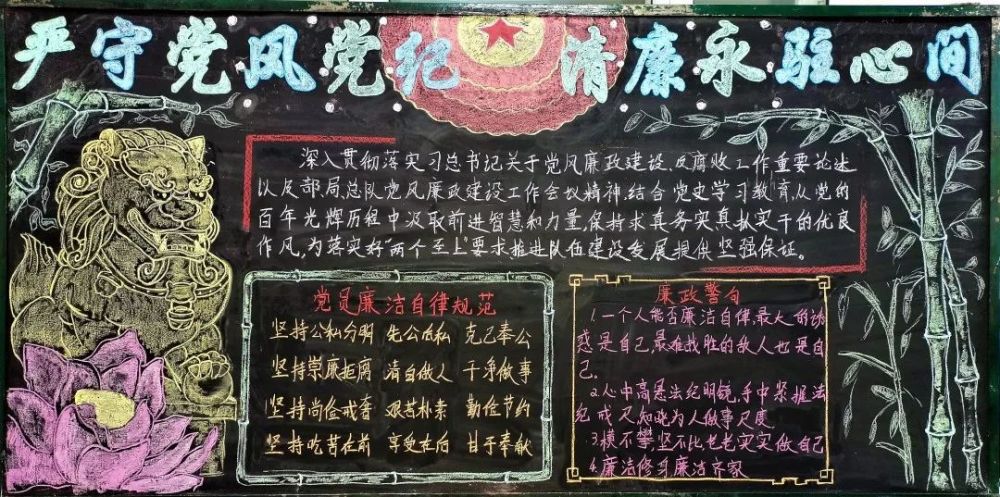 严守党风党纪 清廉永驻心间
深入贯彻落实习总书记关于党风廉政建设、反腐败工作重要论述
以及部局、总队党风廉政建设工作会议精神,结合党史学习教育,从党的
百年光辉历程中汲取前进智慧和力量,保持求真务实真抓实干的优良
作风,为落实好“两个至上”要求推进队伍建设发展提供坚强保证。
党员廉洁自律规范
坚持公私分明 先公后私 克己奉公
坚持崇廉拒腐 清白做人 干净做事
坚持尚俭戒奢 艰苦朴素 勤俭节约
坚持吃苦在前 享受在后 甘于奉献
廉政警句
1.一个人能否廉洁自律,最大的诱
惑是自己,最难战胜的敌人也是自
己.
2.心中高悬法纪明镜,手中紧握法
纪戒尺知晓为人做事尺度
3.横不攀,竖不比,老老实实做自己
4.廉洁修身廉洁齐家